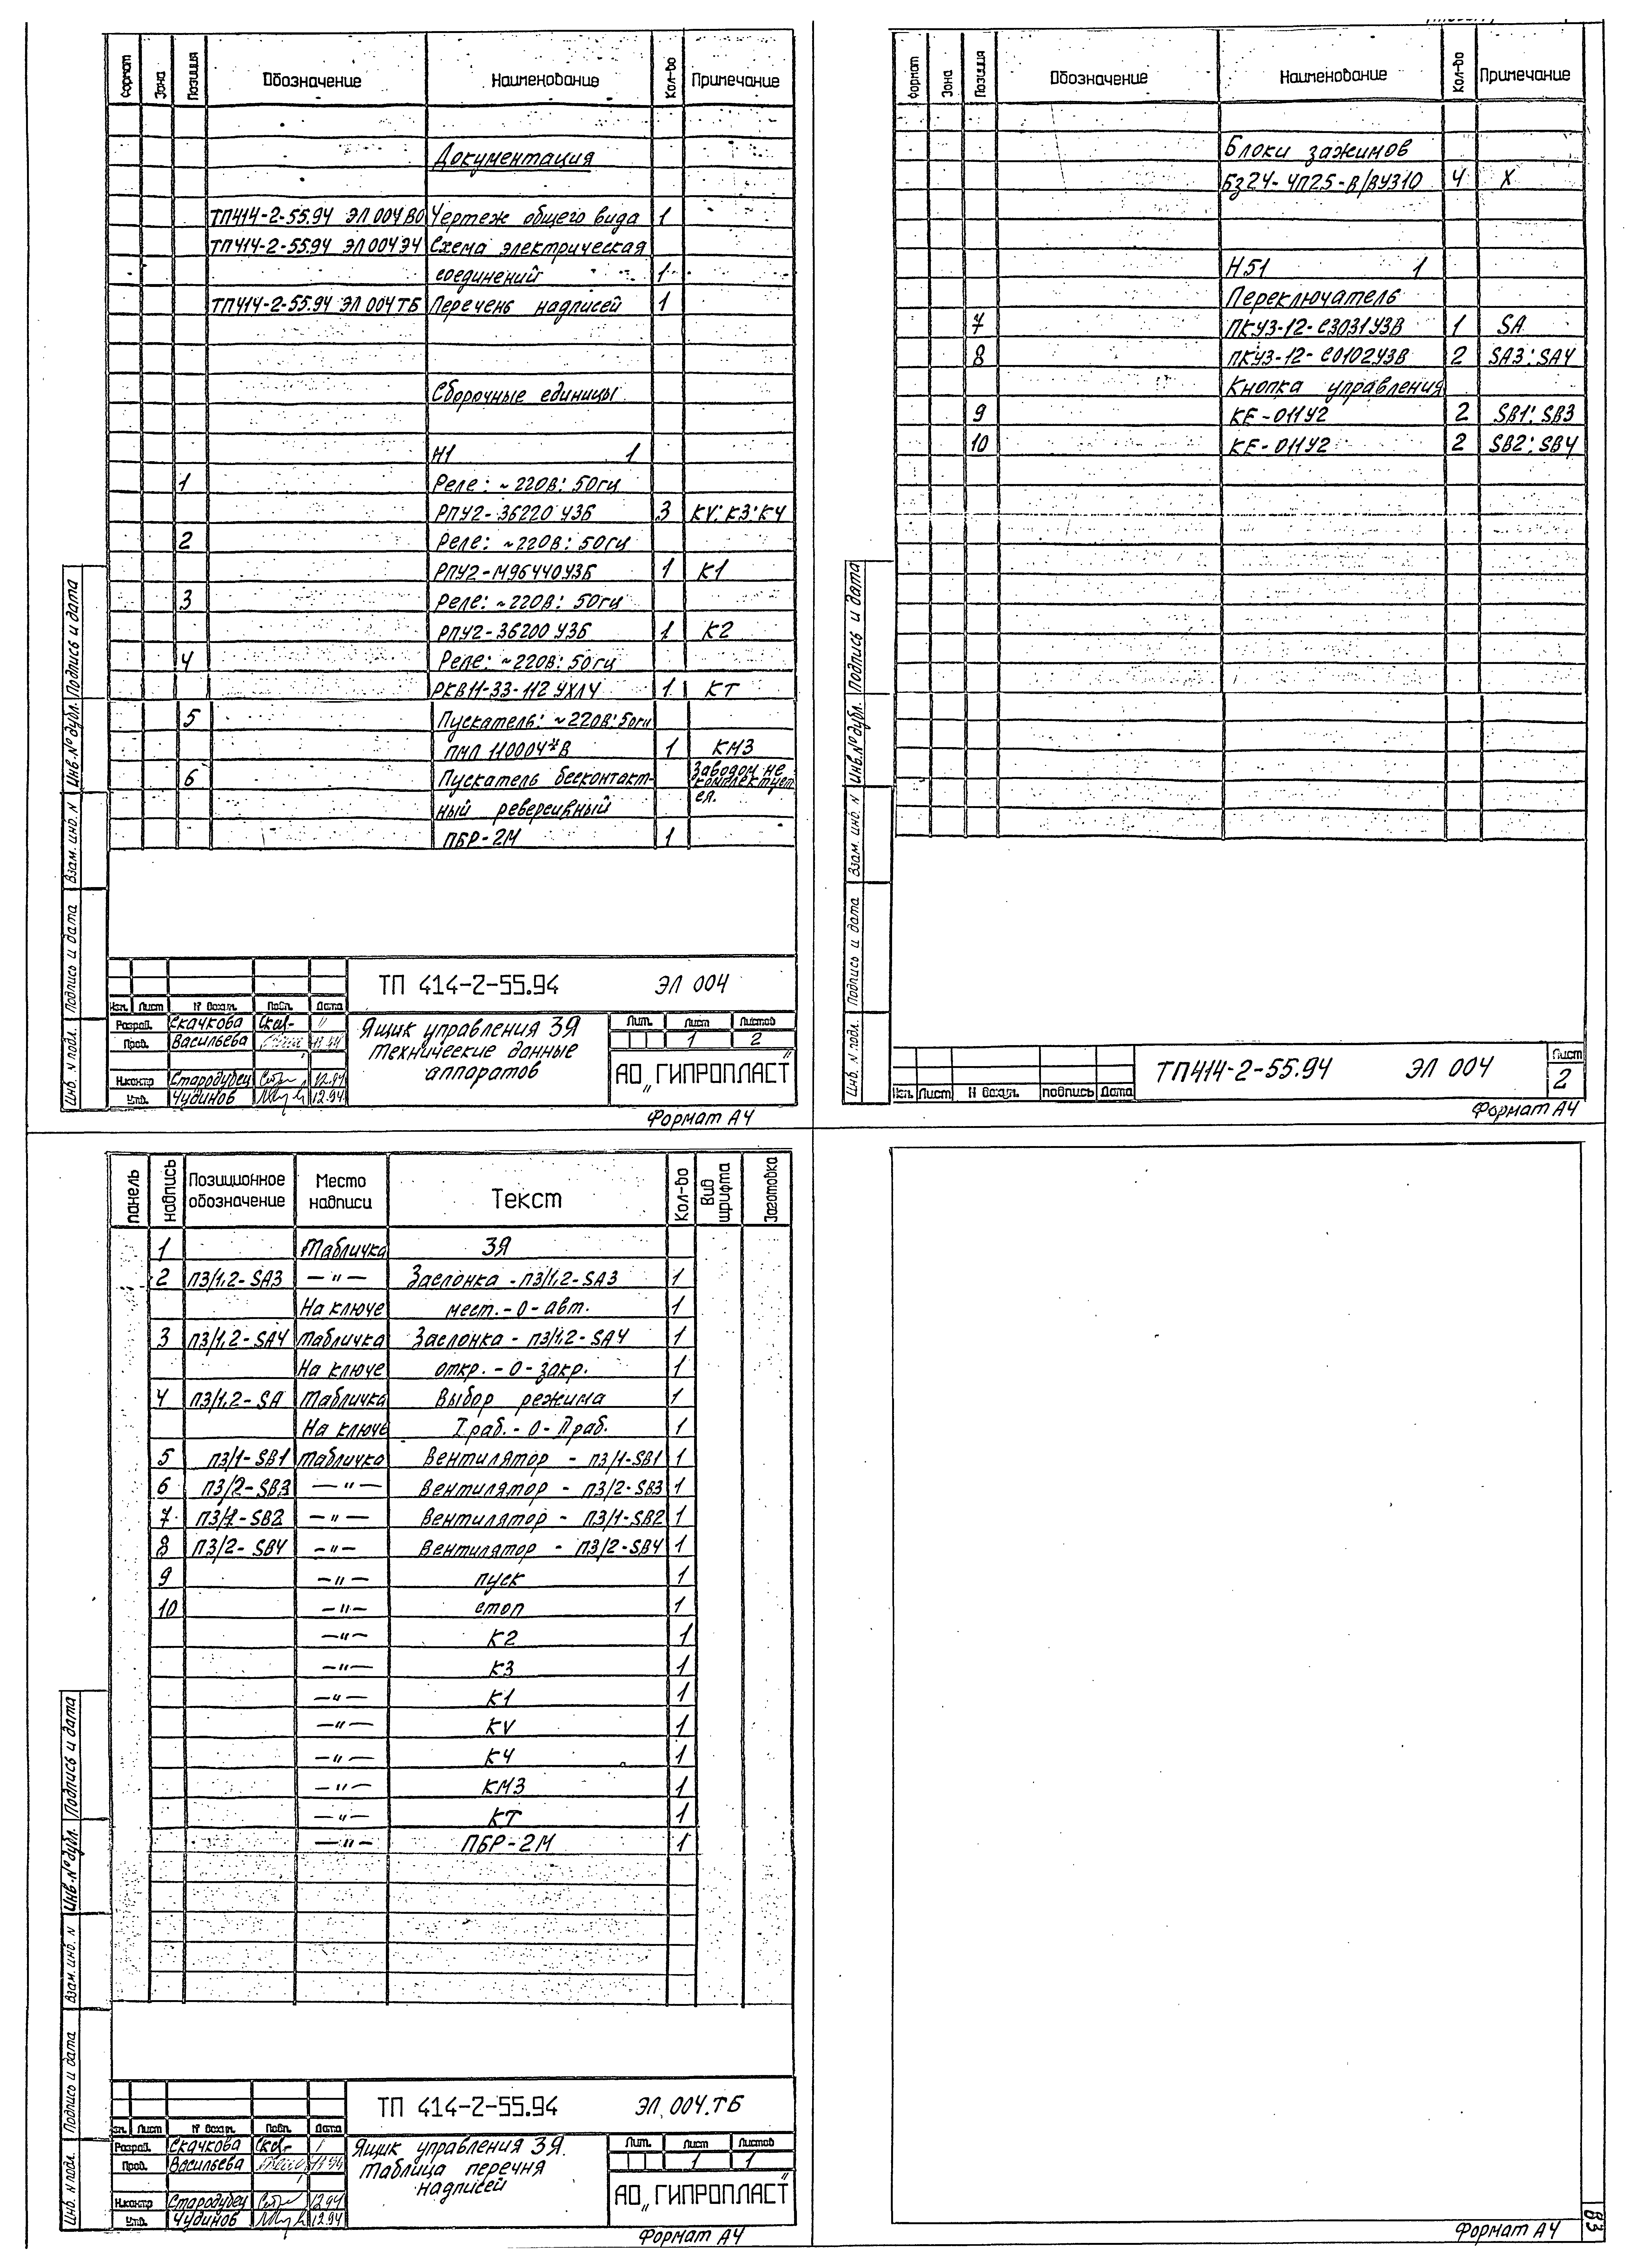 Формат Зона Позиция Обозначение Наименование Кол-во Примечание
Документация
ТП414-2-55.94 ЭЛ 004 ВО Чертеж общего вида 1
ТП414-2-55.94 ЭЛ 004 Э4 Схема электрическая
соединений 1
ТП414-2-55.94 ЭЛ 004 ТБ Перечень надписей 1
Сборочные единицы
Н1 1
1 Реле: ~220В: 50гц
РПУ2-36220 У3Б 3 KV: К3: К4
2 Реле: ~220В: 50гц
РПУ2-М96440У3Б 1 К1
3 Реле: ~220В: 50гц
РПУ2-36200 У3Б 1 К2
4 Реле: ~220В: 50гц
РКВ11-33-112 УХЛ4 1 КТ
5 Пускатель: ~220В: 50гц
ПМЛ 110004*В 1 КМ3
6 Пускатель бесконтакт- Заводом не
комплектует
ный реверсивный ся.
ПБР-2М 1
Подпись и дата
Инв.№ дубл.
Взам. инв. N
Подпись и дата
Инв. N подл.
ТП 414-2-55.94 ЭЛ 004
Изм. Лист N докум. Подп. Дата
Разраб. Скачкова
Пров. Васильева 12.94
Н.контр Стародубец 12.94
Утв. Чудинов 12.94
Ящик управления 3Я
Технические данные
аппаратов
Лит. Лист Листов
1 2
АО „ГИПРОПЛАСТ"
Формат А4
Формат Зона Позиция Обозначение Наименование Кол-во Примечание
Блоки зажимов
Бз24-4П25-В/ВУ310 4 Х
Н51 1
Переключатель
7 ПКУ3-12-С3031У3В 1 SA
8 ПКУ3-12-С0102У3В 2 SA3: SA4
Кнопка управления
9 КЕ-011У2 2 SB1: SB3
10 КЕ-011У2 2 SB2: SB4
Подпись и дата
Инв.№ дубл.
Взам. инв. N
Подпись и дата
Инв. N подл.
Изм. Лист N докум. подпись Дата
ТП414-2-55.94 ЭЛ 004
Лист
2
Формат А4
панель надпись Позиционное обозначение Место надписи Текст Кол-во Вид шрифта Заготовка
1 Табличка 3Я
2 П3/1,2-SA3 —"— Заслонка -П3/1,2-SA3 1
На ключе мест.-0-авт. 1
3 П3/1,2-SA4 Табличка Заслонка - П3/1,2-SA4 1
На ключе откр.-0-закр. 1
4 П3/1,2-SA Табличка Выбор режима 1
На ключе I раб.-0-II раб. 1
5 П3/1-SB1 Табличка Вентилятор - П3/1-SB1 1
6 П3/2-SB3 —"— Вентилятор - П3/2-SB3 1
7 П3/1-SB2 —"— Вентилятор - П3/1-SB2 1
8 П3/2-SB4 —"— Вентилятор - П3/2-SB4 1
9 —"— пуск 1
10 —"— стоп 1
—"— К2 1
—"— К3 1
—"— К1 1
—"— KV 1
—"— К4 1
—"— КМ3 1
—"— КТ 1
—"— ПБР-2М 1
Подпись и дата
Инв.№ дубл.
Взам. инв. N
Подпись и дата
Инв. N подл.
ТП 414-2-55.94 ЭЛ. 004.ТБ
Лист N докум. Подп. Дата
Разраб. Скачкова
Пров. Васильева
Н.контр Стародубец 12.94
Утв. Чудинов 12.94
Ящик управления 3Я.
Таблица перечня
надписей
Лит. Лист Листов
1 1
АО „ГИПРОПЛАСТ"
Формат А4
Формат А4
83